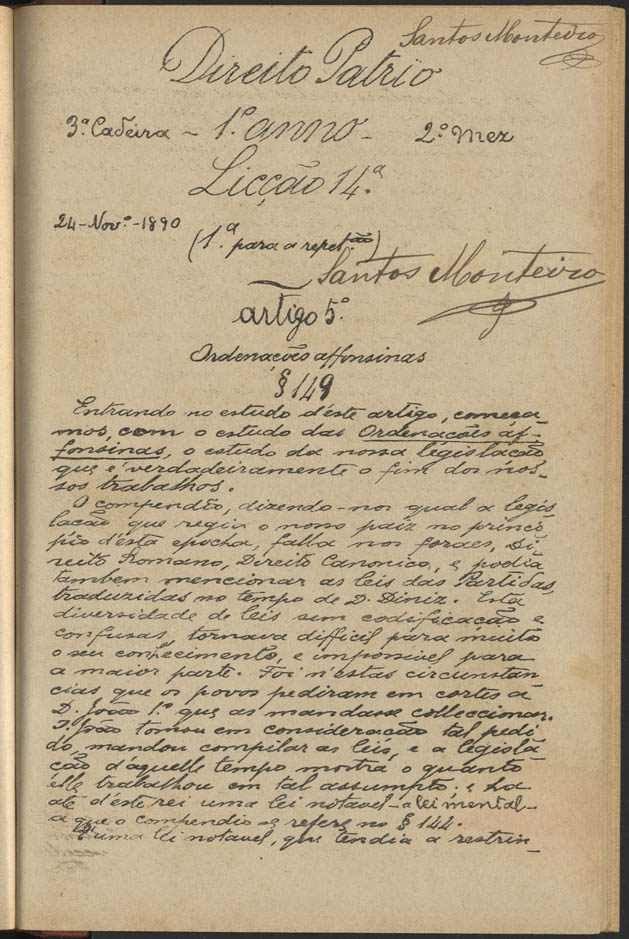 Santos Monteiro
Direito Patrio
3ª Cadeira ~ 1º anno - 2º Mez
Licção 14ª
24-Novº-1890
(1ª para a repetção)
Santos Monteiro
artigo 5º
Ordenações affonsinas
§ 149
Entrando no estudo d'éste artigo, começa-
mos, com o estudo das Ordenações af-
fonsinas, o estudo da nossa legislação
que é verdadeiramente o fim dos nos-
sos trabalhos.
O compendio, dizendo-nos qual a legis
lacão que regia o nosso paiz no princi
pio d'ésta epocha, falla nos foraes, Di-
reito Romano, Direito Canonico, e podia
tambem mencionar as leis das Partidas,
traduzidas no tempo de D. Diniz. Ésta
diversidade de leis sem codificação e
confusas, tornava difficil para muito
o seu conhecimento, e impossivel para
a maior parte. Foi n'éstas circunstan
cias que os povos pediram em cortes a
D. João 1º que as mandasse colleccionar.
D. João tomou em consideração tal pedi-
do, mandou compilar as leis, e a législa
ção d'aquelle tempo mostra o quanto
élle trabalhou em tal assumpto; e ha
até d'éste rei uma lei notavel - a lei mental -
a que o compendio se refere no § 144.
É uma lei notavel, que tendia a restrin-